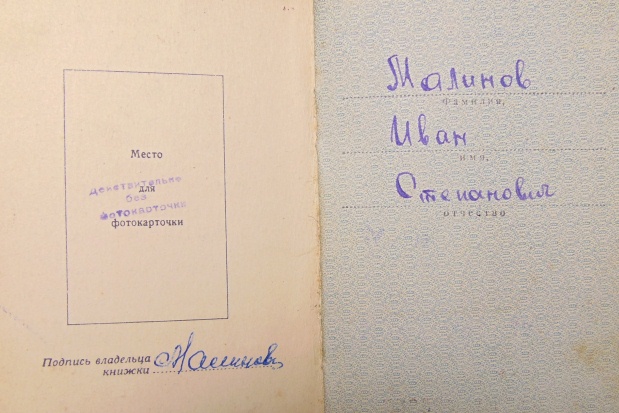 Место
для
фотокарточки
Действительно
без
фотокарточки
Подпись владельца
книжки Малинов
Малинов
фамилия,
Иван
имя,
Степанович
отчество